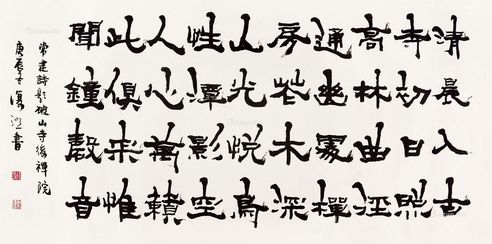 清晨入古
寺初日照
高林曲徑
通幽處禪
房花木深
山光悦鳥
性潭影空
人心萬籟
此俱寂惟
聞鐘磬音
常建詩題破山寺後禪院
庚辰書